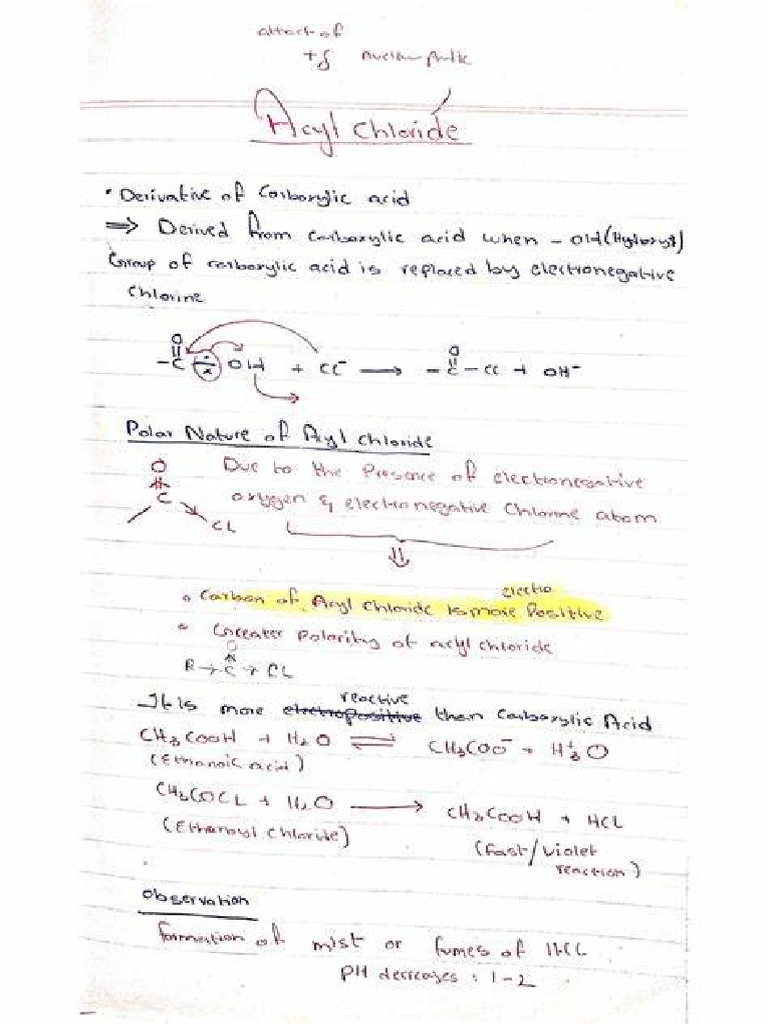 attact of
+δ nucleophilic
Acyl Chloride
• Derivative of Carboxylic acid
⇒ Derived from carboxylic acid when -OH (Hydroxyl)
Group of carboxylic acid is replaced by electronegative
Chlorine
O
-C OH + Cl⁻ → -C-Cl + OH⁻
Polar Nature of Acyl Chloride
O
C
CL
Due to the Presence of electronegative
oxygen & electronegative Chlorine atom
⇓
electro
• Carbon of Acyl Chloride is more Positive
• Greater Polarity of acyl chloride
O
R → C → CL
reactive
It is more electropositive than Carboxylic Acid
CH3COOH + H2O ⇌ CH3COO⁻ + H3⁺O
(Ethanoic acid)
CH3COCL + H2O → CH3COOH + HCL
(Ethanoyl Chloride)
(Fast/Violet
reaction)
Observation
Formation of mist or fumes of HCL
PH decreases : 1-2